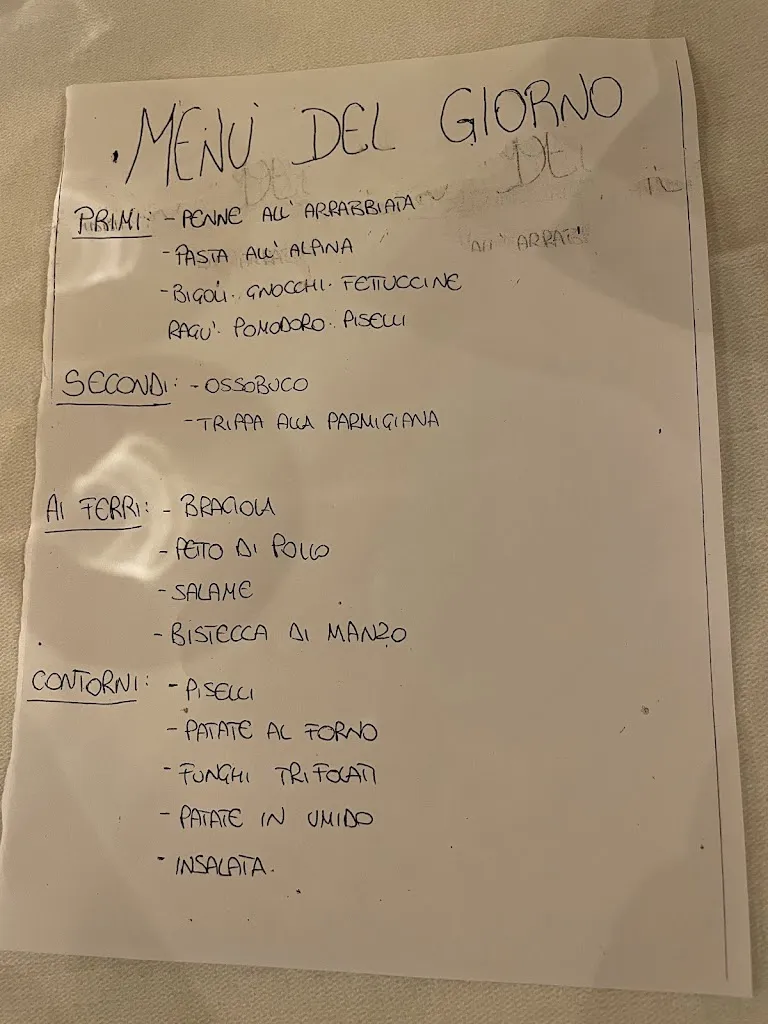 MENÙ DEL GIORNO
PRIMI: - PENNE ALL' ARRABBIATA
- PASTA ALL' ALPINA
- BIGOLI. GNOCCHI. FETTUCCINE
RAGU'. POMODORO. PISELLI
SECONDI: - OSSOBUCO
- TRIPPA ALLA PARMIGIANA
AI FERRI: - BRACIOLA
- PETTO DI POLLO
- SALAME
- BISTECCA DI MANZO
CONTORNI: - PISELLI
- PATATE AL FORNO
- FUNGHI TRIFOLATI
- PATATE IN UMIDO
- INSALATA.